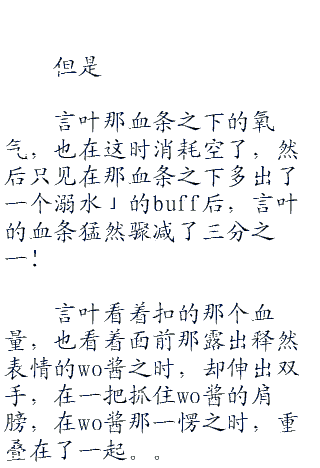 但是
言叶那血条之下的氧
气，也在这时消耗空了，然
后只见在那血条之下多出了
一个溺水」的buff后，言叶
的血条猛然骤减了三分之
一！
言叶看着扣的那个血
量，也看着面前那露出释然
表情的wo酱之时，却伸出双
手，在一把抓住wo酱的肩
膀，在wo酱那一愣之时，重
叠在了一起。。